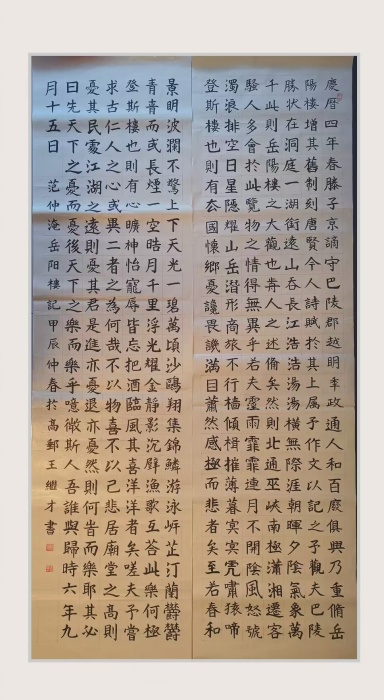 慶曆四年春滕子京謫守巴陵郡越明年政通人和百廢俱興乃重脩岳
陽樓增其舊制刻唐賢今人詩賦於其上属予作文以記之予觀夫巴陵
勝狀在洞庭一湖銜遠山吞長江浩浩湯湯橫無際涯朝暉夕陰氣象萬
千此則岳陽樓之大觀也歬人之述備矣然則北通巫峽南極瀟湘遷客
騷人多會於此覽物之情得無異乎若夫霪雨霏霏連月不開陰風怒號
濁浪排空日星隱耀山岳潛形商旅不行檣傾楫摧薄暮冥冥虎嘯猿啼
登斯樓也則有去國懷鄉憂讒畏譏滿目蕭然感極而悲者矣至若春和
景明波瀾不驚上下天光一碧萬頃沙鷗翔集錦鱗游泳岸芷汀蘭鬱鬱
青青而或長煙一空皓月千里浮光耀金靜影沉璧漁歌互荅此樂何極
登斯樓也則有心曠神怡寵辱皆忘把酒臨風其喜洋洋者矣嗟夫予嘗
求古仁人之心或異二者之為何哉不以物喜不以己悲居廟堂之高則
憂其民處江湖之遠則憂其君是進亦憂退亦憂然則何時而樂耶其必
曰先天下之憂而憂後天下之樂而樂乎噫微斯人吾誰與歸時六年九
月十五日 范仲淹岳阳樓記甲辰仲春於高郵王繼才書